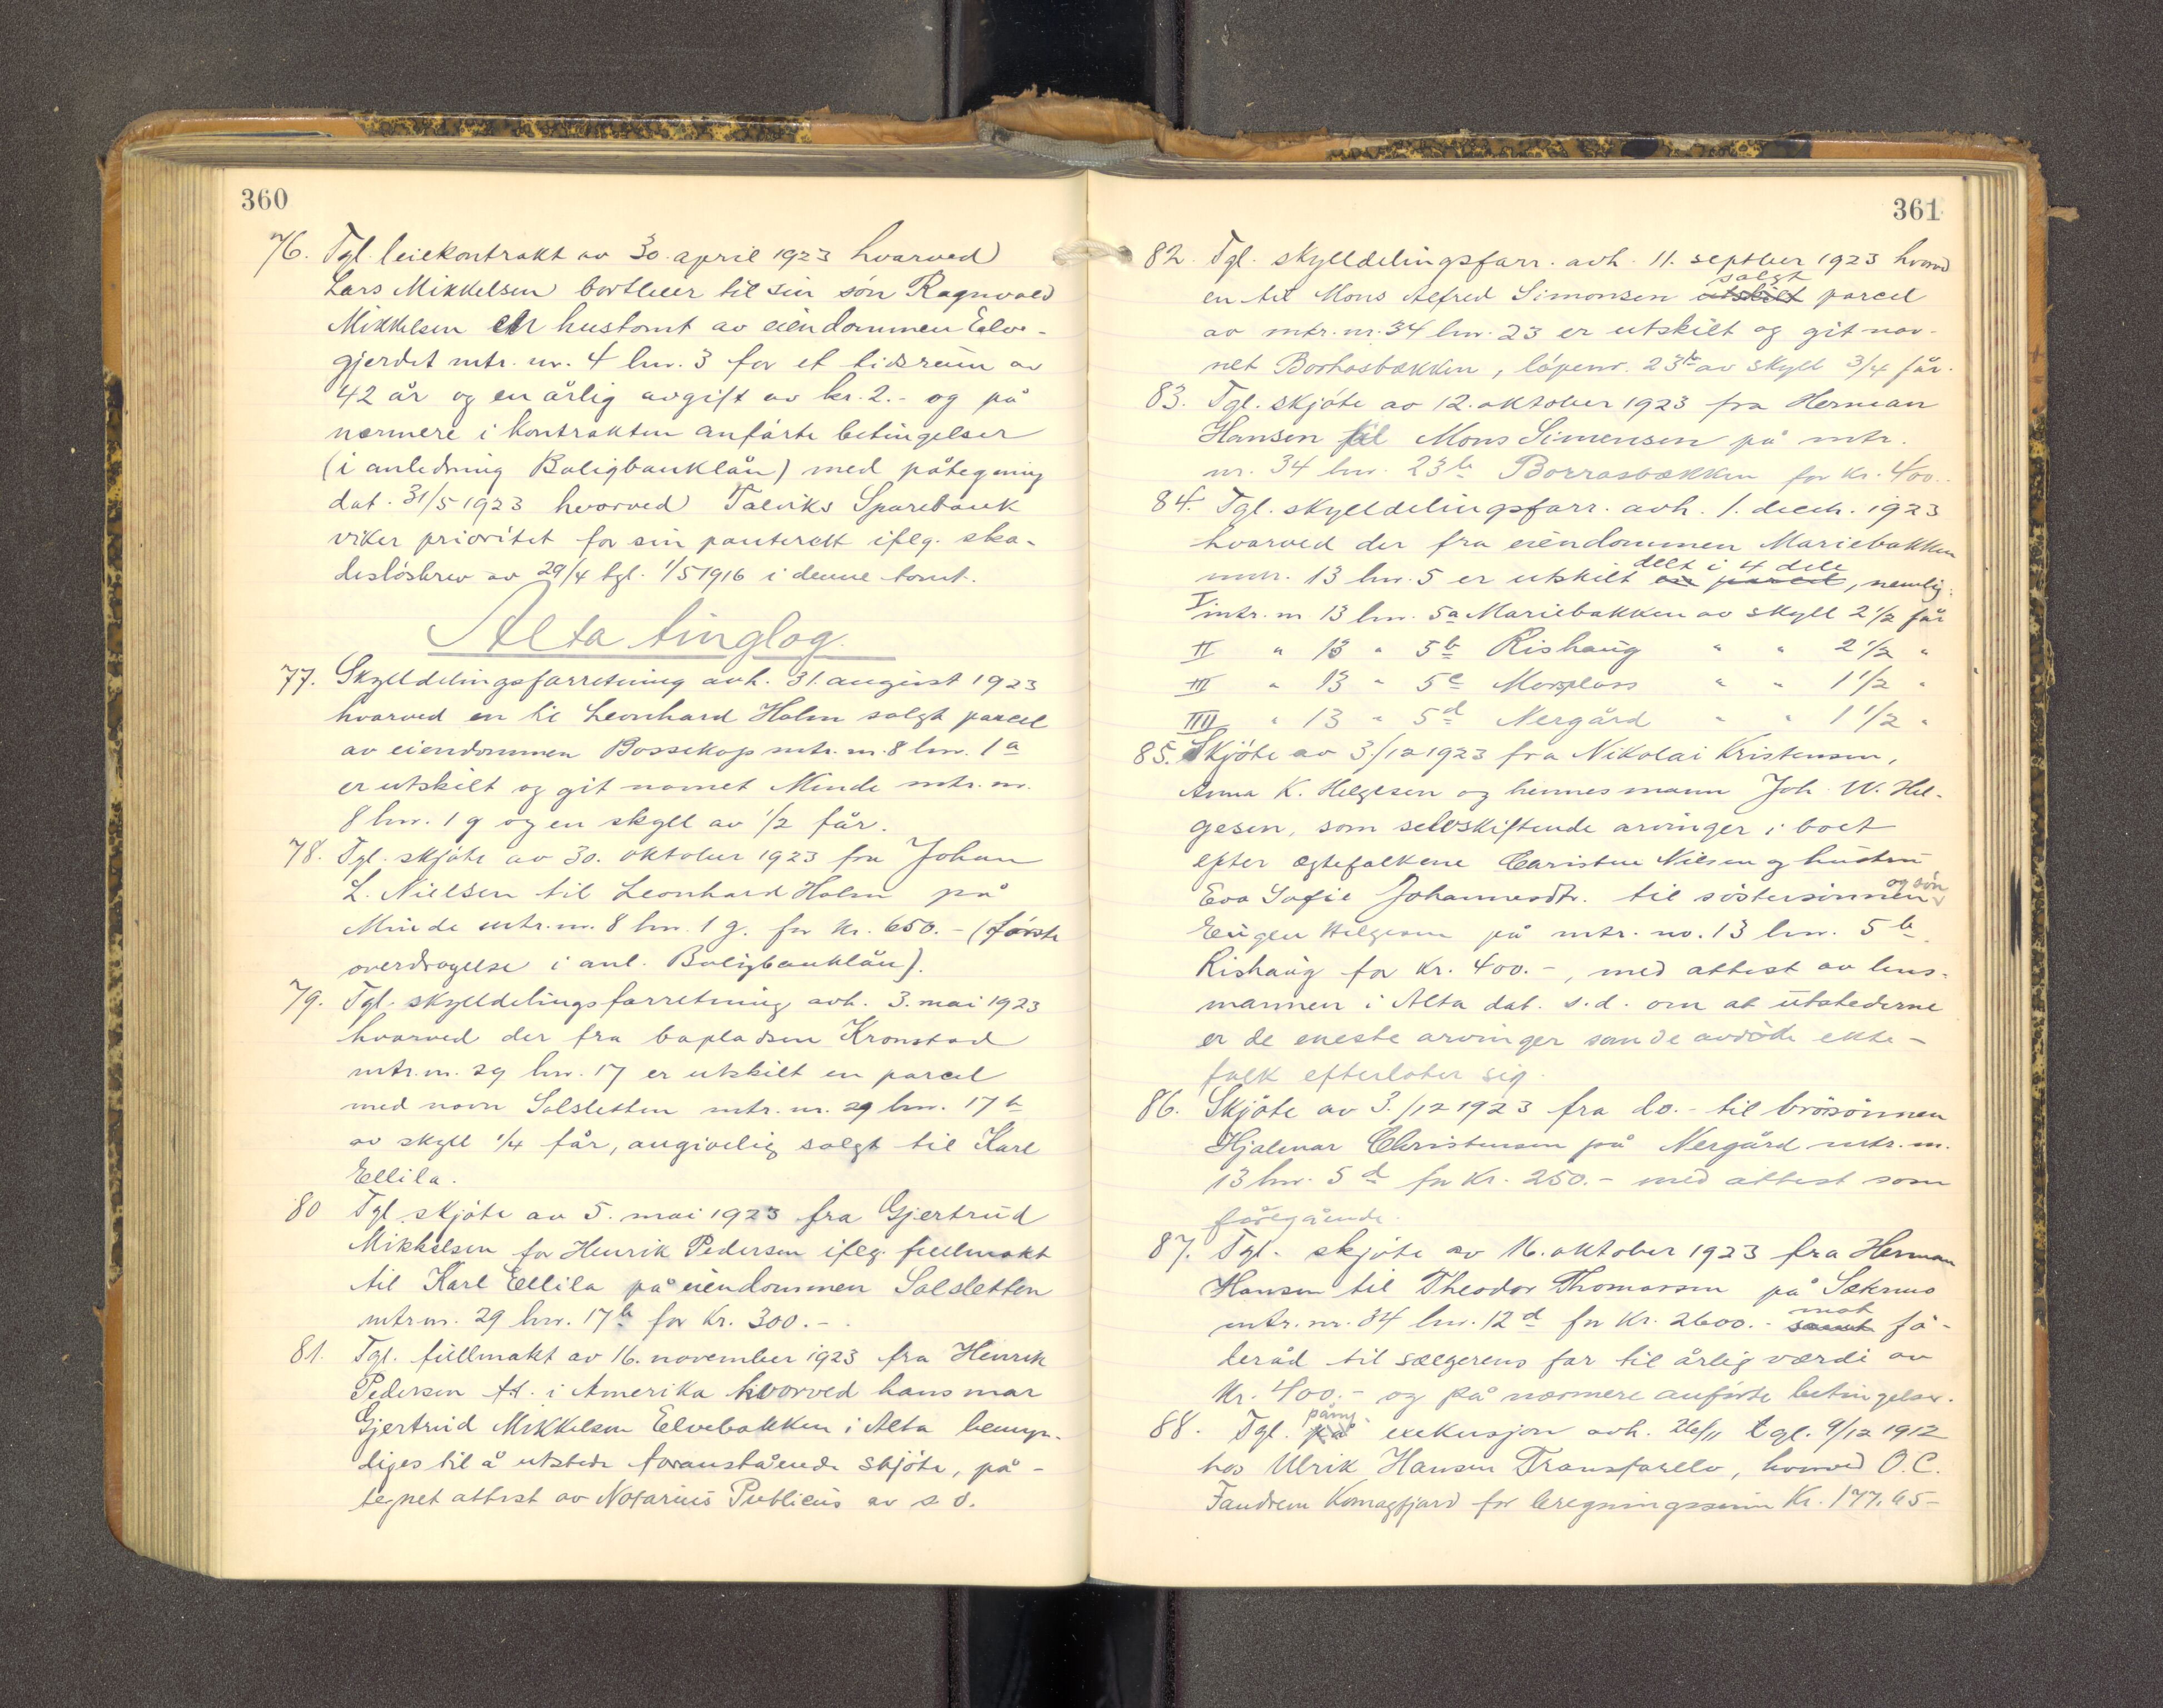 360
76. Tgl. leiekontrakt av 30. april 1923 hvorved
Lars Mikkelsen bortleier til sin søn Ragnvald
Mikkelsen en hustomt av eiendommen Elve-
gjerdet mtr. nr. 4 lnr. 3 for et tidsrum av
42 år og en årlig avgift av kr. 2.- og på
nærmere i kontrakten anførte betingelser
(i anledning Boligbanklån) med påtegning
dat. 31/5 1923 hvorved Talviks Sparebank
viker prioritet for sin panterett iflg. ska-
desløsbrev av 29/4 tgl. 1/5 1916 i denne tomt.
Alta tinglag.
77. Skylddelingsforretning avh. 31. august 1923
hvorved en til Leonhard Holm solgt parcel
av eiendommen Bossekop mtr. nr. 8 lnr. 1a
er utskilt og git navnet Minde mtr. nr.
8 lnr. 1g og en skyld av 1/2 får.
78. Tgl. skjøte av 30. oktober 1923 fra Johan
L. Nielsen til Leonhard Holm på
Minde mtr. nr. 8 lnr. 1 g. for kr. 650.- (første
overdragelse i anl. Boligbanklån).
79. Tgl. skylddelingsforretning avh. 3. mai 1923
hvorved der fra bopladsen Kronstad
mtr. nr. 29 lnr. 17 er utskilt en parcel
med navn Solsletten mtr. nr. 29 lnr. 17b
av skyld 1/4 får, angivelig solgt til Karl
Ellila.
80 Tgl. skjøte av 5. mai 1923 fra Gjertrud
Mikkelsen for Henrik Pedersen iflg. fullmakt
til Karl Ellila på eiendommen Solsletten
mtr nr. 29 lnr. 17b for Kr. 300.-
81. Tgl. fullmakt av 16. november 1923 fra Henrik
Pedersen tt. i Amerika hvorved hans mor
Gjertrud Mikkelsen Elvebakken i Alta bemyn-
diges til å utstede foranstående skjøte, på-
tegnet attest av Notarius Publicus av s d.
361
82. Tgl. skylddelingsforr. avh. 11. septber 1923 hvorved
solgt
en til Mons Alfred Simonsen utskilt parcel
av mtr. nr. 34 lnr. 23 er utskilt og git nav-
net Borrasbækken, løpenr. 23b av skyld 3/4 får.
83. Tgl. skjøte av 12. oktober 1923 fra Herman
Hansen til Mons Simonsen på mtr.
nr. 34 lnr. 23b Borrasbækken for kr. 400.
84. Tgl. skylddelingsforr. avh. 1. decbr. 1923
hvorved der fra eiendommen Mariebakken
delt i 4 dele
mnr. 13 lnr. 5 er utskilt en parcel, nemlig:
I mtr. nr 13 lnr. 5a Mariebakken av skyld 2 1/2 får
II " 13 " 5b Rishaug " " 2 1/2 "
III " 13 " 5c Morplass " " 1 1/2 "
IIII " 13 " 5d Nergård " " 1 1/2 "
85. Skjøte av 3/12 1923 fra Nikolai Kristensen,
Anna K. Helgesen og hennes mann Joh. W. Hel-
gesen, som selvskiftende arvinger i boet
efter ægtefolkene Christen Nilsen og hustru
og søn
Eva Sofie Johannesdtr. til søstersønnen
Eugen Helgesen på mtr. no. 13 lnr. 5b
Rishaug for kr. 400.-, med attest av lens-
mannen i Alta dat. s.d. om at utstederne
er de eneste arvinger som de avdøde ekte-
folk efterlater sig.
86. Skjøte av 3./12 1923 fra do.- til brorsønnen
Hjalmar Christensen på Nergård mtr. nr.
13 lnr. 5d for Kr. 250.- med attest som
foregående.
87. Tgl. skjøte av 16. oktober 1923 fra Herman
Hansen til Theodor Thomassen på Sakrismo
mot
mtr. nr. 34 lnr. 12d for Kr. 2600.- samt fø-
deråd til sælgerens far til årlig værdi av
Kr. 400.- og på nærmere anførte betingelser.
påny
88. Tgl. på exekusjon avh. 26/11 tgl. 9/12 1912
hos Ulrik Hansen Transfarelv, hvorved O. C.
Fandrem Komagfjord for beregningssum Kr. 177,65-